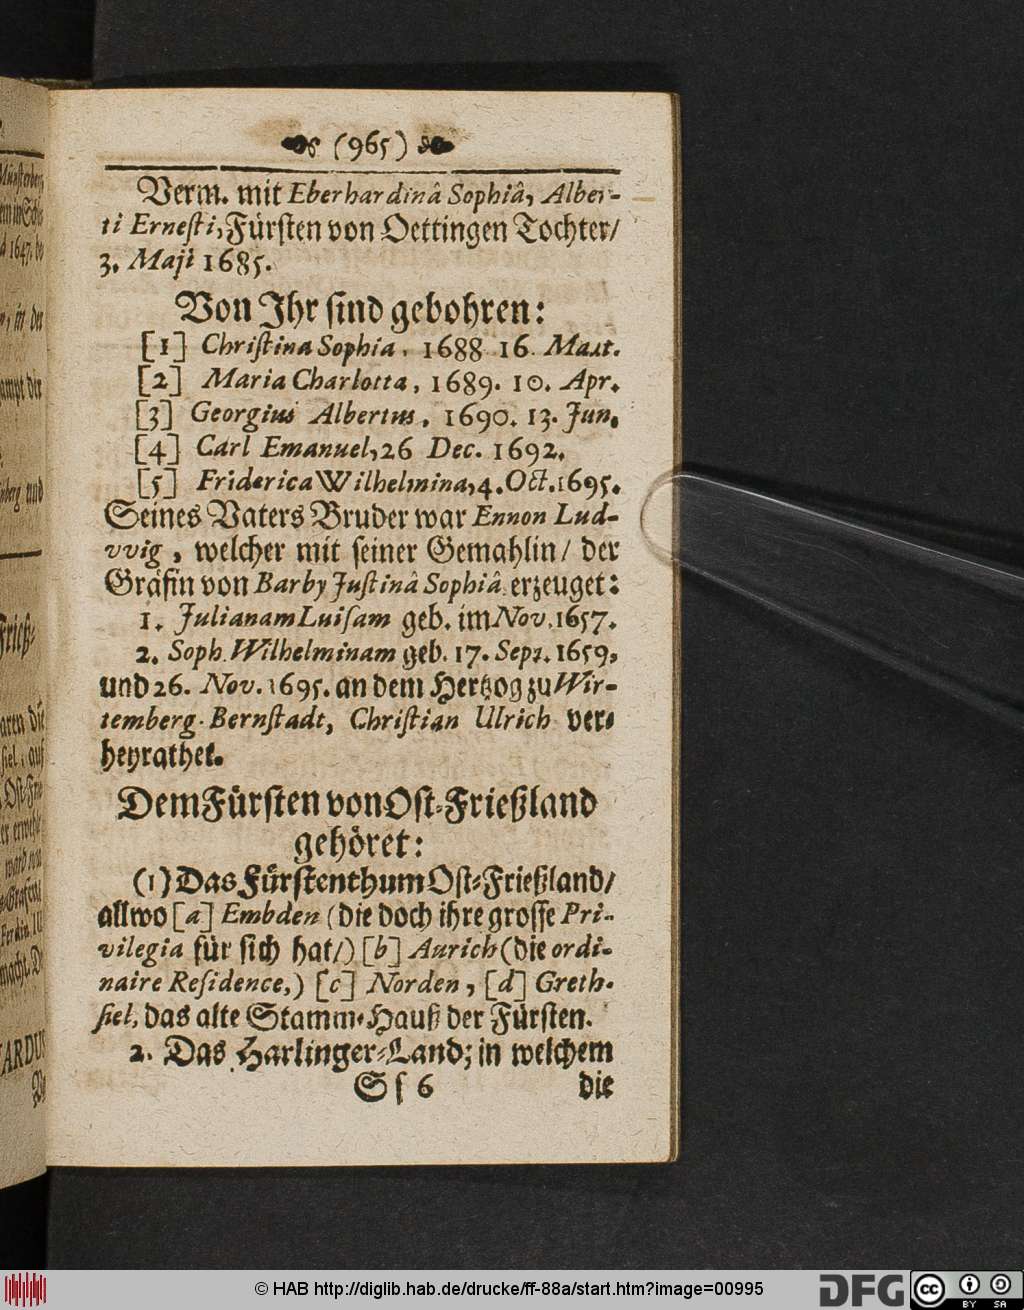 (965)
Verm. mit Eberhardinâ Sophiâ, Alber-
ti Erneſti, Fürſten von Oettingen Tochter/
3. Maji 1685.
Von Ihr ſind gebohren:
[1] Chriſtina Sophia, 1688 16. Mart.
[2] Maria Charlotta, 1689. 10. Apr.
[3] Georgius Albertus, 1690. 13. Jun.
[4] Carl Emanuel, 26 Dec. 1692.
[5] Friderica Wilhelmina, 4. Oct. 1695.
Seines Vaters Bruder war Ennon Lud-
vvig, welcher mit ſeiner Gemahlin/ der
Gräfin von Barby Juſtinâ Sophiâ erzeuget:
1. Julianam Luiſam geb. im Nov. 1657.
2. Soph. Wilhelminam geb. 17. Sept. 1659,
und 26. Nov. 1695. an dem Hertzog zu Wir-
temberg-Bernſtadt, Chriſtian Ulrich ver-
heyrathet.
Dem Fürſten von Oſt-Frießland
gehöret:
(1) Das Fürſtenthum Oſt-Frießland/
allwo [a] Embden (die doch ihre groſſe Pri-
vilegia für ſich hat/) [b] Aurich (die ordi-
naire Reſidence,) [c] Norden, [d] Greth-
ſiel, das alte Stamm-Hauß der Fürſten.
2. Das Harlinger-Land; in welchem
Sſ 6 die
© HAB http://diglib.hab.de/drucke/ff-88a/start.htm?image=00995
DFG
cc BY SA